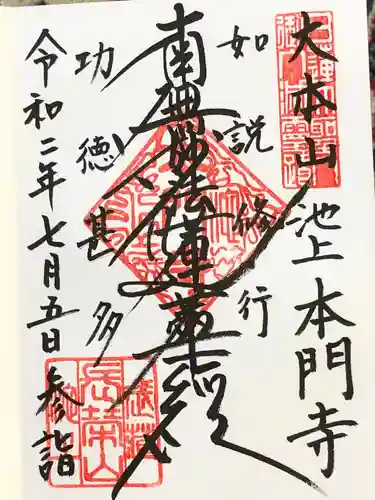 大本山
池上本門寺
如説修行
南無妙法蓮華経
功徳甚多
令和二年七月五日参詣
長栄山